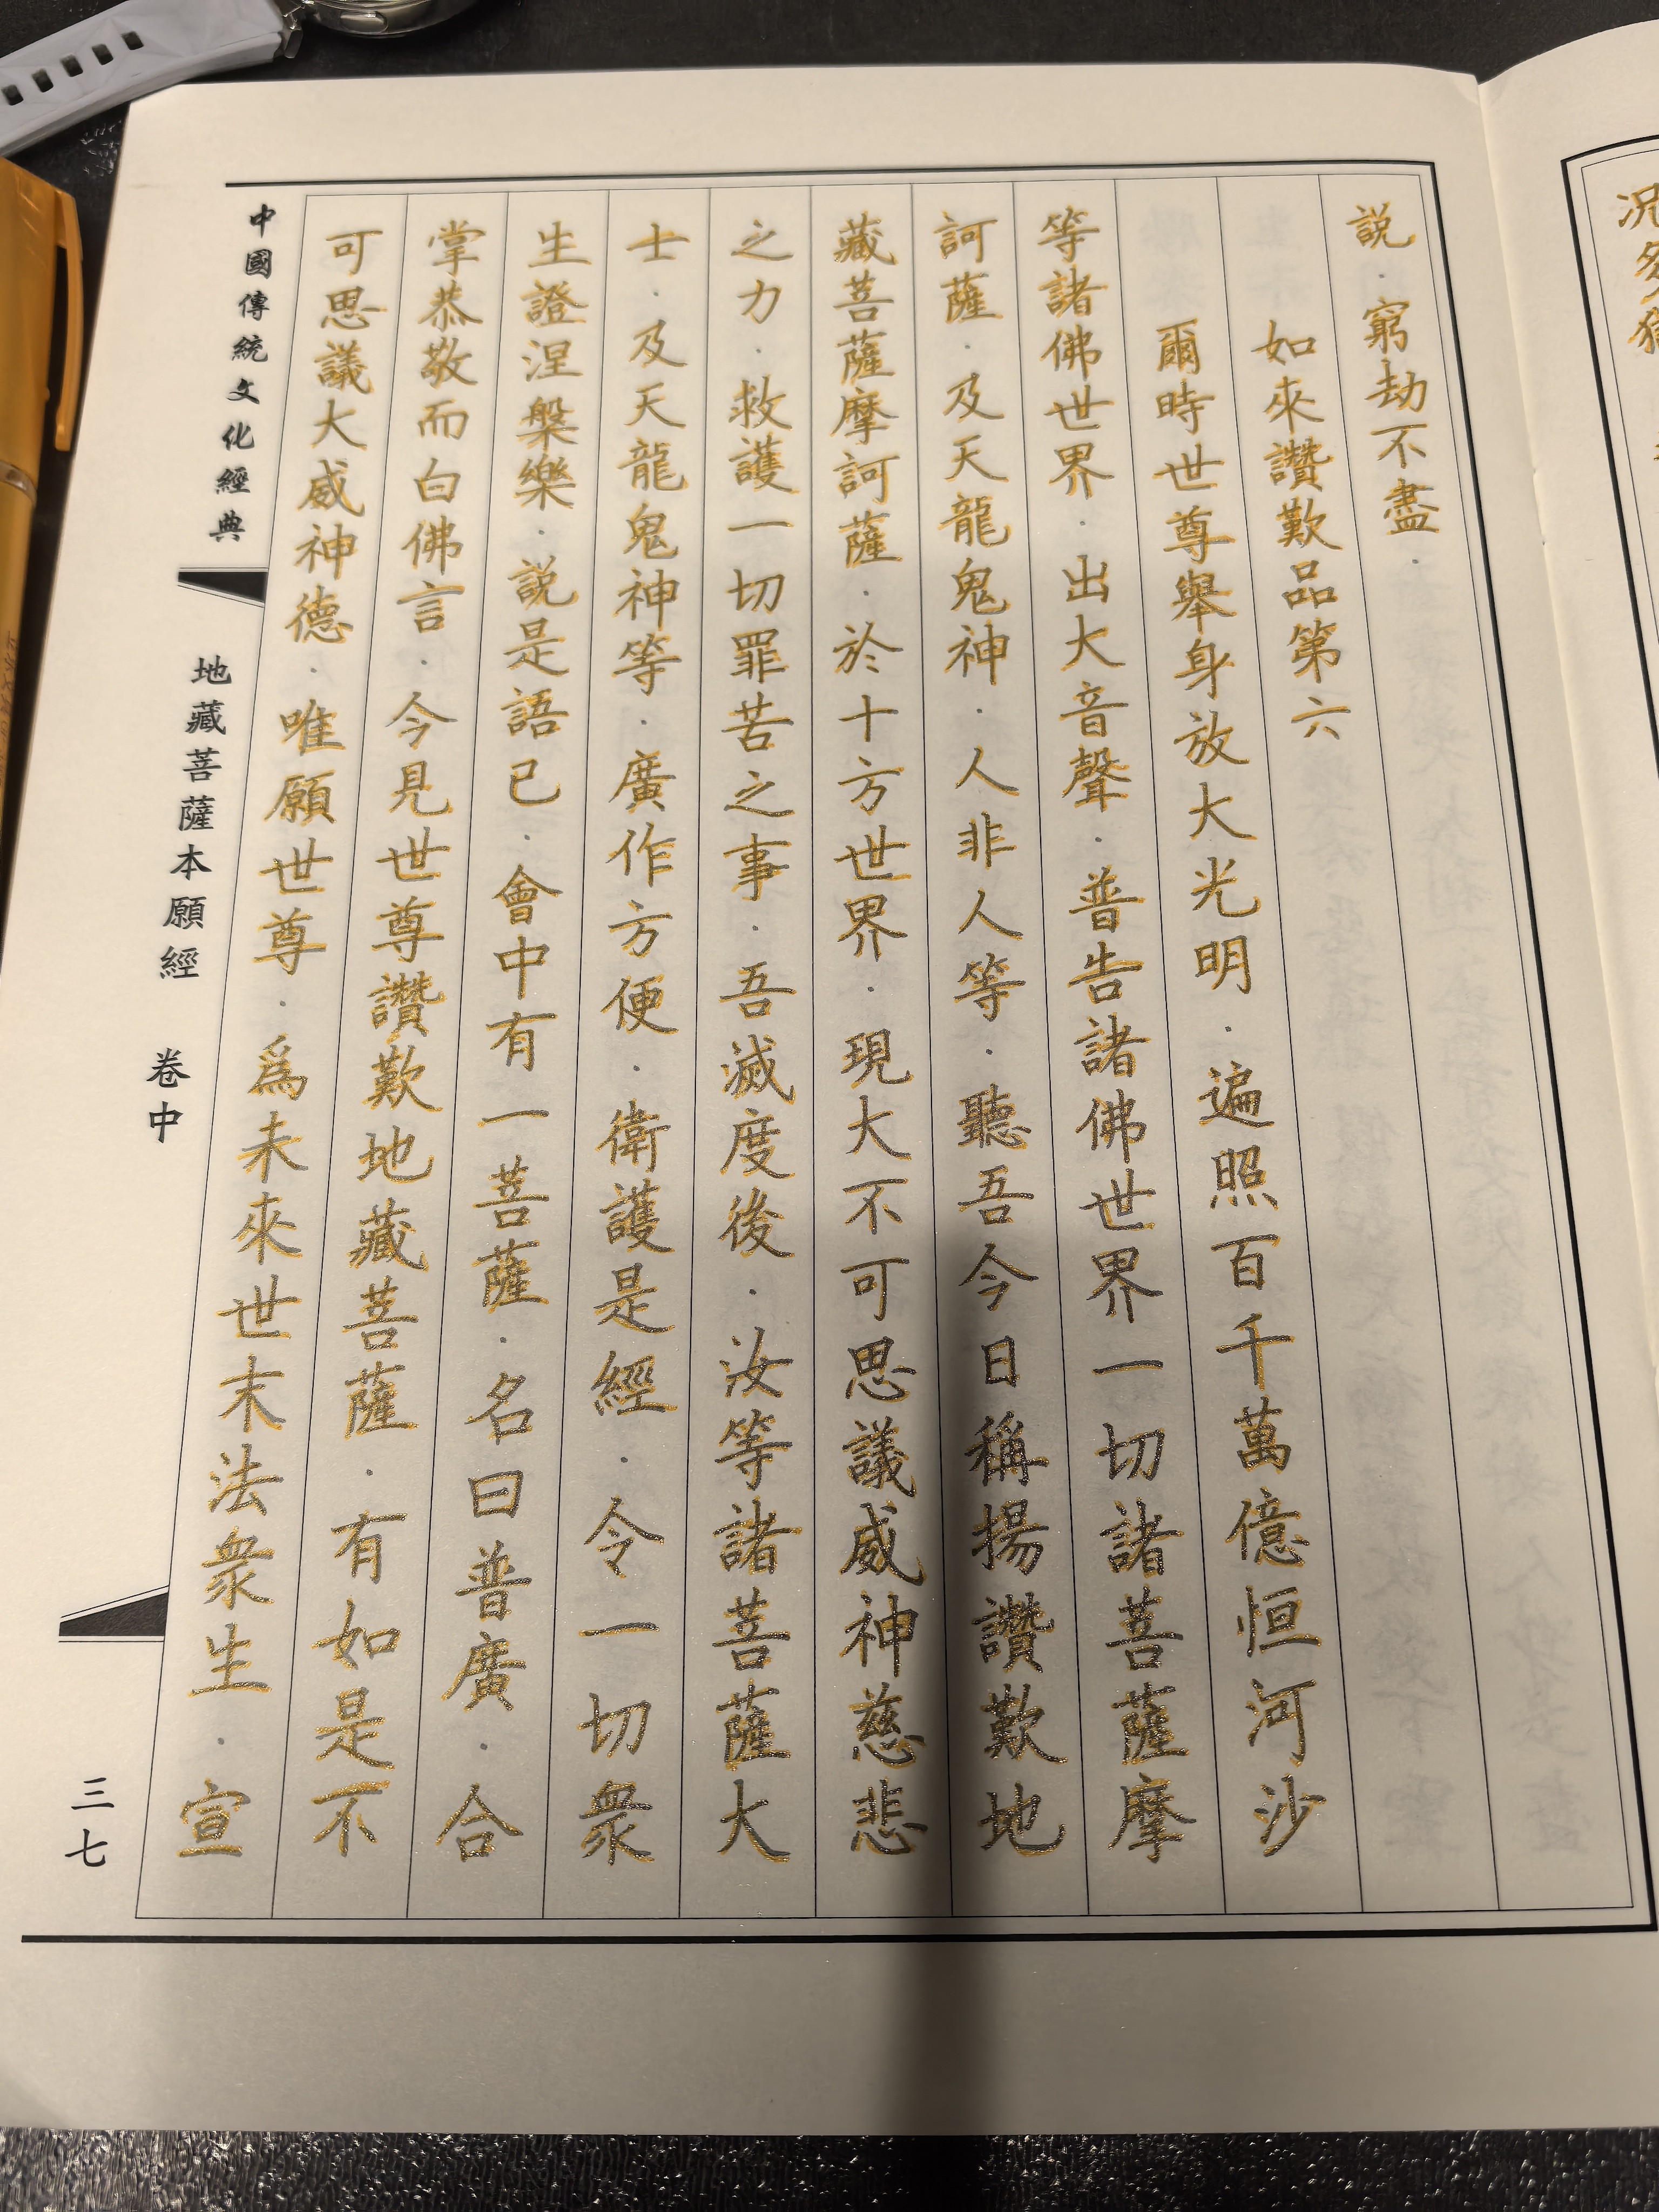 説．窮劫不盡．
如來讚歎品第六
爾時世尊舉身放大光明．遍照百千萬億恒河沙
等諸佛世界．出大音聲．普告諸佛世界一切諸菩薩摩
訶薩．及天龍鬼神．人非人等．聽吾今日稱揚讚歎地
藏菩薩摩訶薩．於十方世界．現大不可思議威神慈悲
之力．救護一切罪苦之事．吾滅度後．汝等諸菩薩大
士．及天龍鬼神等．廣作方便．衛護是經．令一切衆
生證涅槃樂．説是語已．會中有一菩薩．名曰普廣．合
掌恭敬而白佛言．今見世尊讚歎地藏菩薩．有如是不
可思議大威神德．唯願世尊．爲未來世末法衆生．宣
中國傳統文化經典
地藏菩薩本願經 卷中
三七